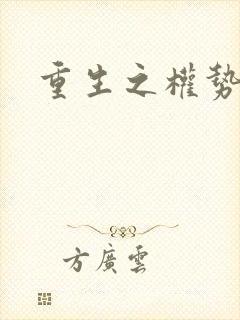 重生之權勢
方廣雲